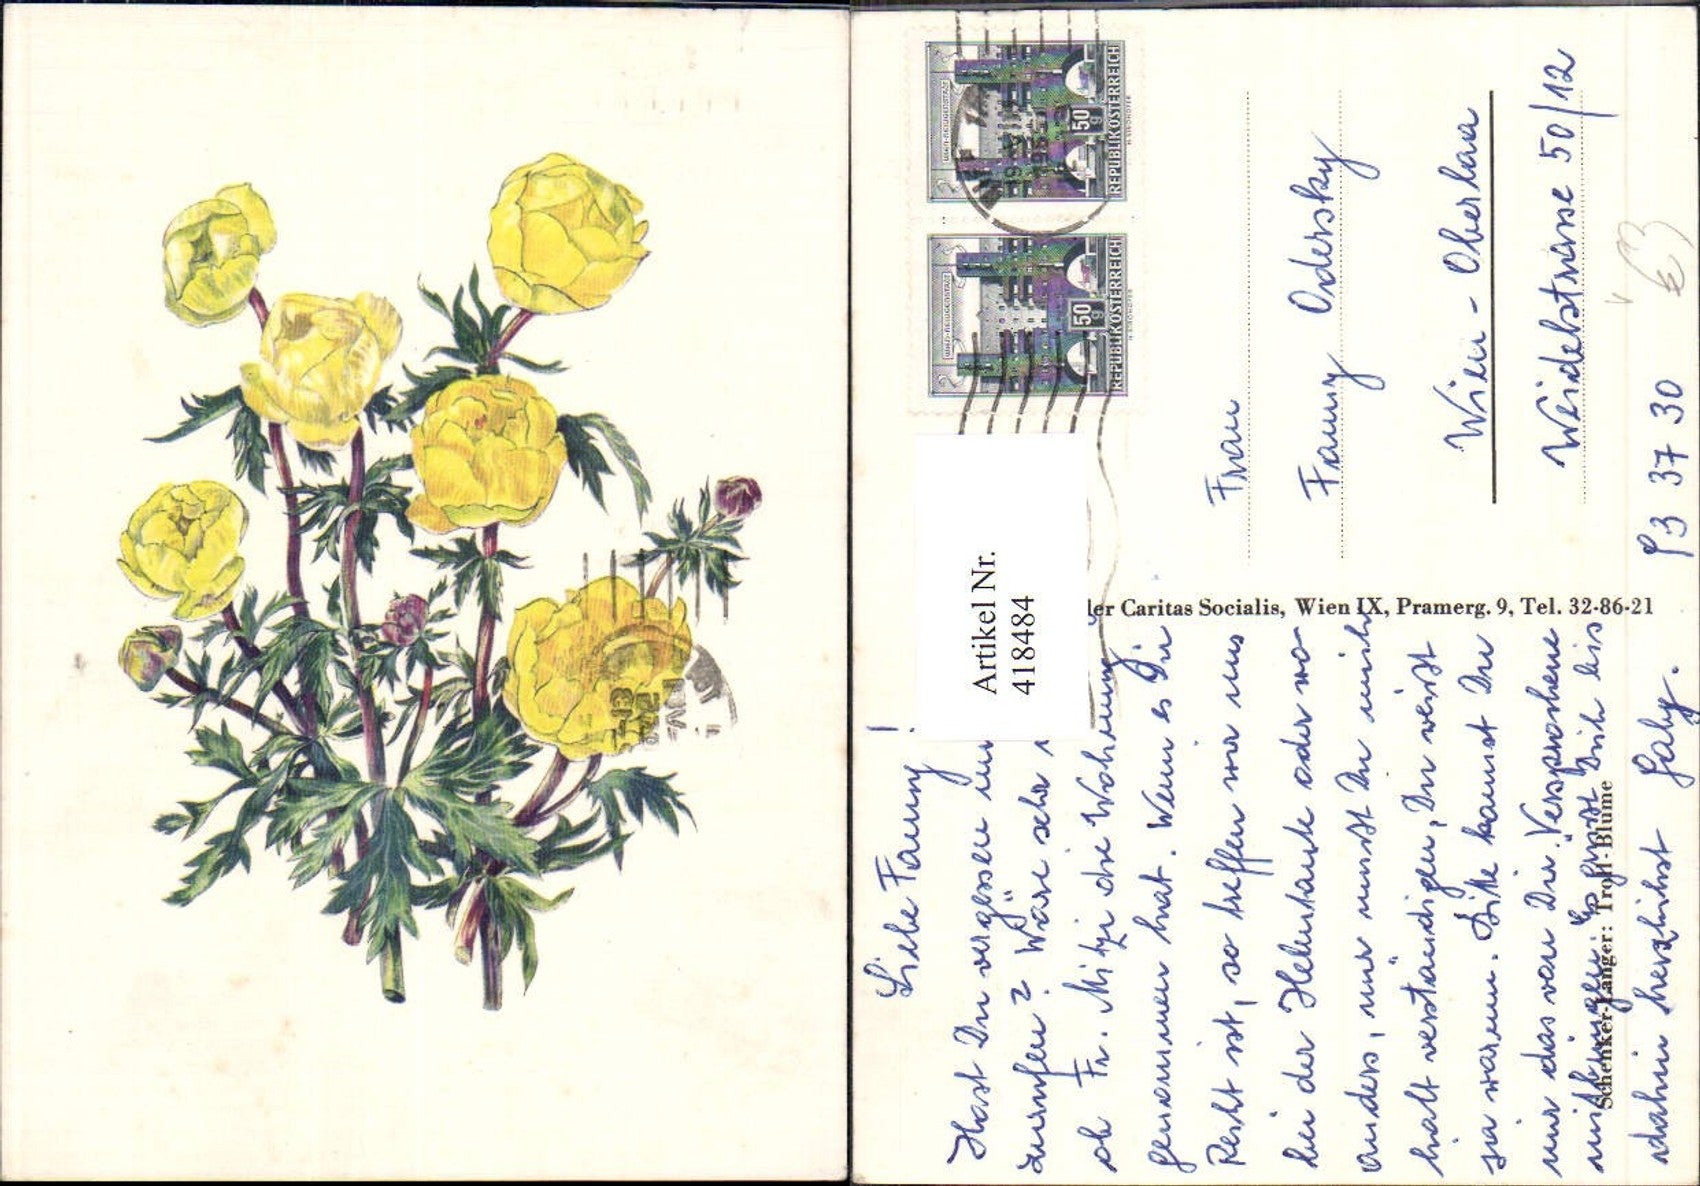 Liebe Fanny!
Hast Du vergessen
anrufen? Wäre sehr
ob Fr. Mitzi die Wohnung
genommen hat. Wenn es Dir
Recht ist, so treffen wir uns
bei der Helentante oder wo
anders, nur musst Du mich
halt verständigen, Du weisst
ja warum. Bitte kannst Du
mir das von Dir Versprochene
mitbringen. Es grüsst Dich bis
dahin herzlichst Gaby.
Schenker-Langer: Troll-Blume
der Caritas Socialis, Wien IX, Pramerg. 9, Tel. 32-86-21
Artikel Nr.
418484
REPUBLIK ÖSTERREICH
50 g
REPUBLIK ÖSTERREICH
50 g
Frau
Fanny Odersky
Wien - Oberlaa
Weidelstrasse 50/12
93 37 30
€3